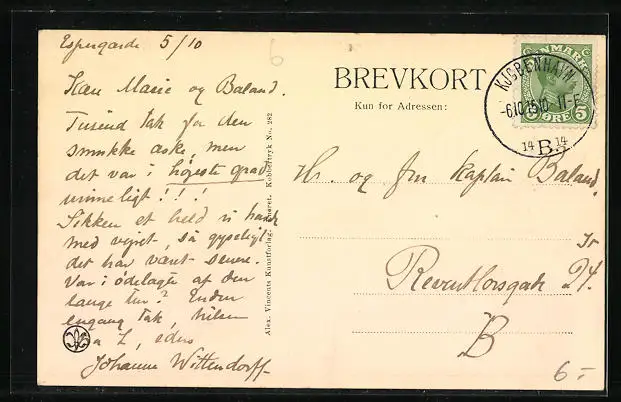 Espergærde 5/10
Kære Marie og Baland.
Tusind tak for den
smukke æske, men
det var i højeste grad
urimeligt!!!
Sikken et held vi havde
med vejret, så gyseligt
det har været senere.
Var I ødelagte af den
lange tur? Endnu
engang tak, hilsen
fra Z, eders
Johanne Wittendorff
Alex. Vincents Kunstforlag, Eneret. Kobbertryk No. 282
6
BREVKORT
Kun for Adressen:
DANMARK
5 ØRE 5
KJØBENHAVN
-6.10.15.10-11-F.
14 B. 14
Hr. og Fru Kaptain Baland.
Reventlowsgade 24.
B
6.-